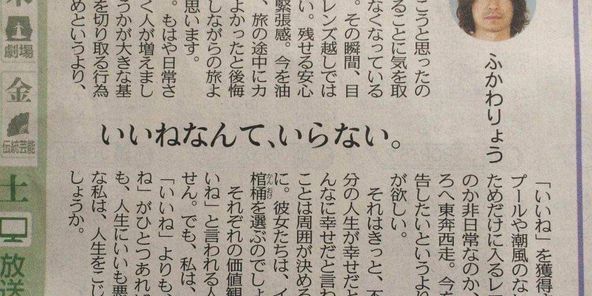 ふかわりょう
こうと思ったの
ることに気を取
なくなっている
。その瞬間、目
レンズ越しでは
い。残せる安心
緊張感。今を油
、旅の途中にカ
よかったと後悔
しながらの旅よ
思います。
。もはや日常さ
く人が増えまし
うかが大きな基
を切り取る行為
めというより、
いいねなんて、いらない。
「いいね」を獲得
プールや潮風のな
ためだけに入るレ
のか非日常なのか
ろへ東奔西走。今を
告したいというより
が欲しい。
それはきっと、不
分の人生が幸せだと
んなに幸せだと言わ
ことは周囲が決める
に。彼女たちは、イ
棺桶を選ぶのでしょ
それぞれの価値観
いね」と言われる人
せん。でも、私は、
「いいね」よりも、
ね」がひとつあれば
も、人生にいいも悪
な私は、人生をこじ
しょうか。
劇場
金
伝統芸能
土
放送